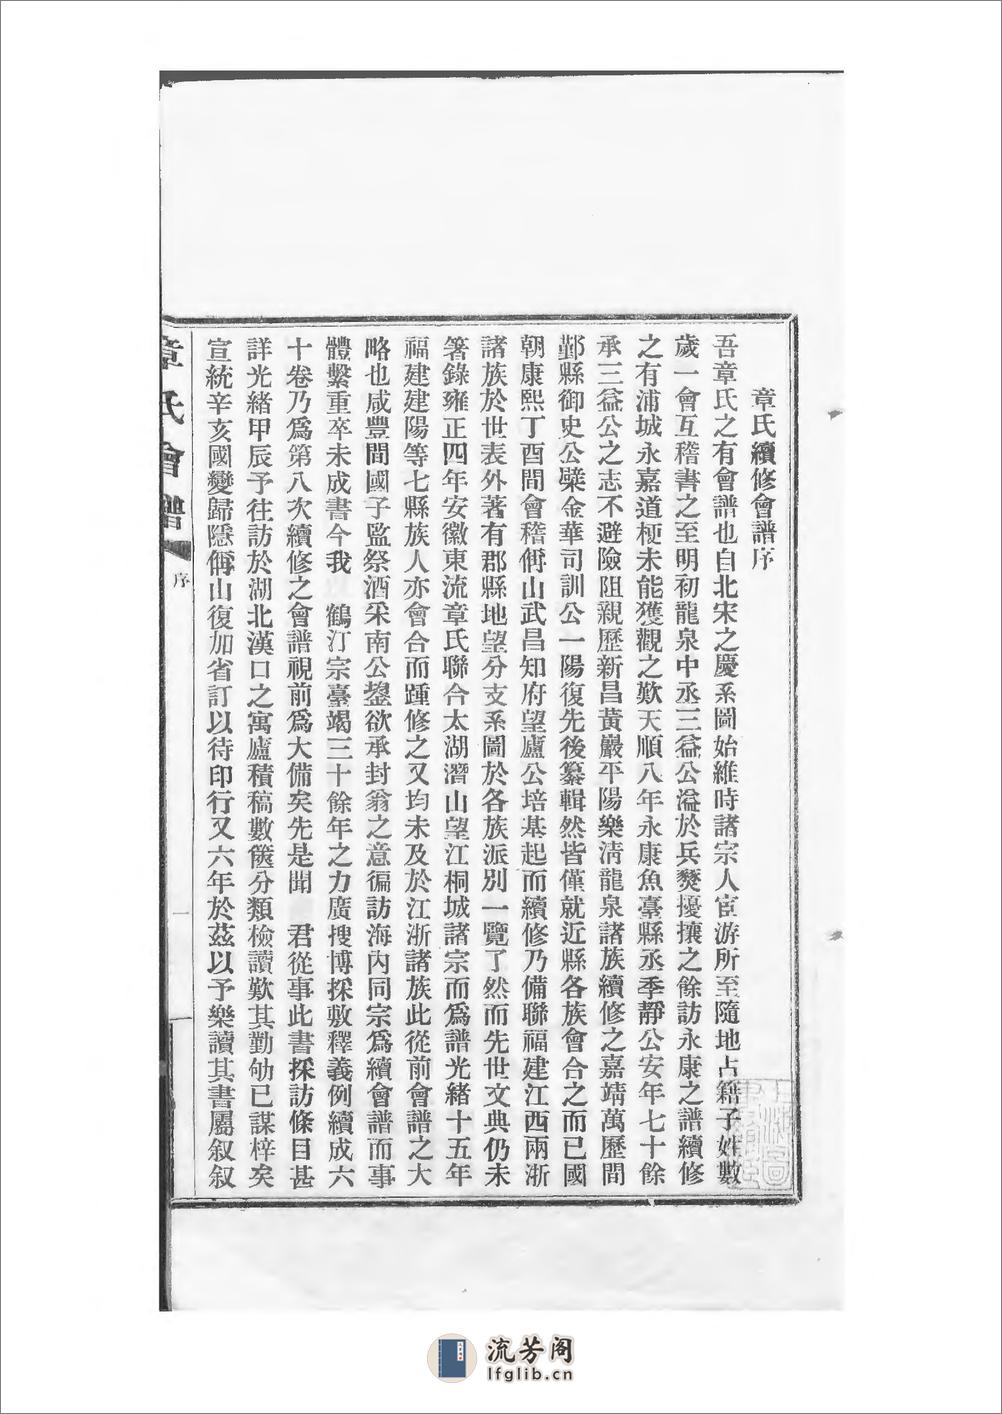 章氏續修會譜序
吾章氏之有會譜也自北宋之慶系圖始維時諸宗人宦游所至隨地占籍子姓數
歲一會互稽書之至明初龍泉中丞三益公溢於兵燹擾攘之餘訪永康之譜續修
之有浦城永嘉道梗未能獲觀之歎天順八年永康魚臺縣丞季靜公安年七十餘
承三益公之志不避險阻親歷新昌黃巖平陽樂清龍泉諸族續修之嘉靖萬歷間
鄞縣御史公檗金華司訓公一陽復先後纂輯然皆僅就近縣各族會合之而已國
朝康熙丁酉間會稽偁山武昌知府望廬公培基起而續修乃備聯福建江西兩浙
諸族於世表外著有郡縣地望分支系圖於各族派別一覽了然而先世文典仍未
箸錄雍正四年安徽東流章氏聯合太湖潛山望江桐城諸宗而爲譜光緒十五年
福建建陽等七縣族人亦會合而踵修之又均未及於江浙諸族此從前會譜之大
略也咸豐間國子監祭酒采南公鋆欲承封翁之意徧訪海內同宗爲續會譜而事
體繫重卒未成書今我 鶴汀宗臺竭三十餘年之力廣搜博採敷釋義例續成六
十卷乃爲第八次續修之會譜視前爲大備矣先是聞 君從事此書採訪條目甚
詳光緒甲辰予往訪於湖北漢口之寓廬積稿數篋分類檢讀歎其勤劬已謀梓矣
宣統辛亥國變歸隱偁山復加省訂以待印行又六年於茲以予樂讀其書屬叙叙
章氏會譜
序
一
流芳阁
lfglib.cn